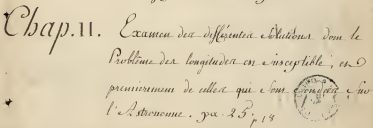 Chap. II. Examen des différentes solutions dont le
Problême des longitudes est susceptible; et
premierement de celles qui sont fondées sur
l'Astronomie. pa. 25, p 18